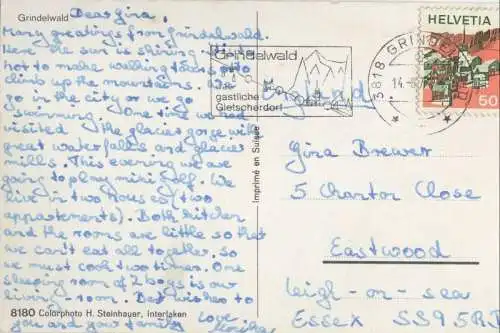 Grindelwald
Dear Gina,
Many greetings from Grindelwald.
Here the sun is shining. It is
hot to make walking tours or to
climb up the mountains. We
go in the city or we go
swimming. One time we
visited the glacier gorge with
great waterfalls and glacier
mills. This evening we are
going to play mini golf. We
live in two houses (two
appartements). Both kitchen
and the rooms are little so that
we can't eat all together. So
we must cook two times. One
sleeping room of 2 boys is our
living-room. Best wishes to
you and your family
Love
8180 Colorphoto H. Steinhauer, Interlaken
Imprimé en Suisse
Grindelwald
gastliche
Gletscherdorf
3818 GRINDELWALD
14.
HELVETIA
50
England
Gina Brewer
5 Chantor Close
Eastwood
Leigh-on-sea
Essex SS9 5R